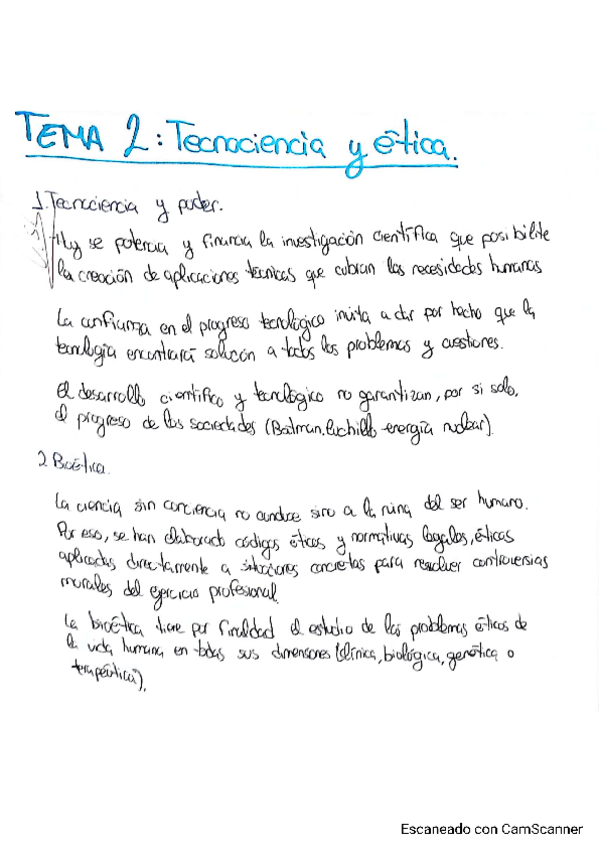 TEMA 2: Tecnociencia y ética.
1. Tecnociencia y poder.
Hy se potencia y financia la investigación científica que posibilite
la creación de aplicaciones técnicas que cubran las necesidades humanas
La confianza en el progreso tecnológico invita a dar por hecho que la
tecnología encontrará solución a todos los problemas y cuestiones.
El desarrollo científico y tecnológico no garantizan, por si solo,
el progreso de las sociedades (Batman, cuchillo energía nuclear).
2 Bioética.
La ciencia sin conciencia no conduce sino a la ruina del ser humano.
Por eso, se han elaborado códigos éticos y normativas legales, éticas
aplicadas directamente a situaciones concretas para resolver controversias
morales del ejercicio profesional.
La bioética tiene por finalidad el estudio de los problemas éticos de
la vida humana en todas sus dimensiones (clínica, biológica, genética o
terapéutica).
Escaneado con CamScanner